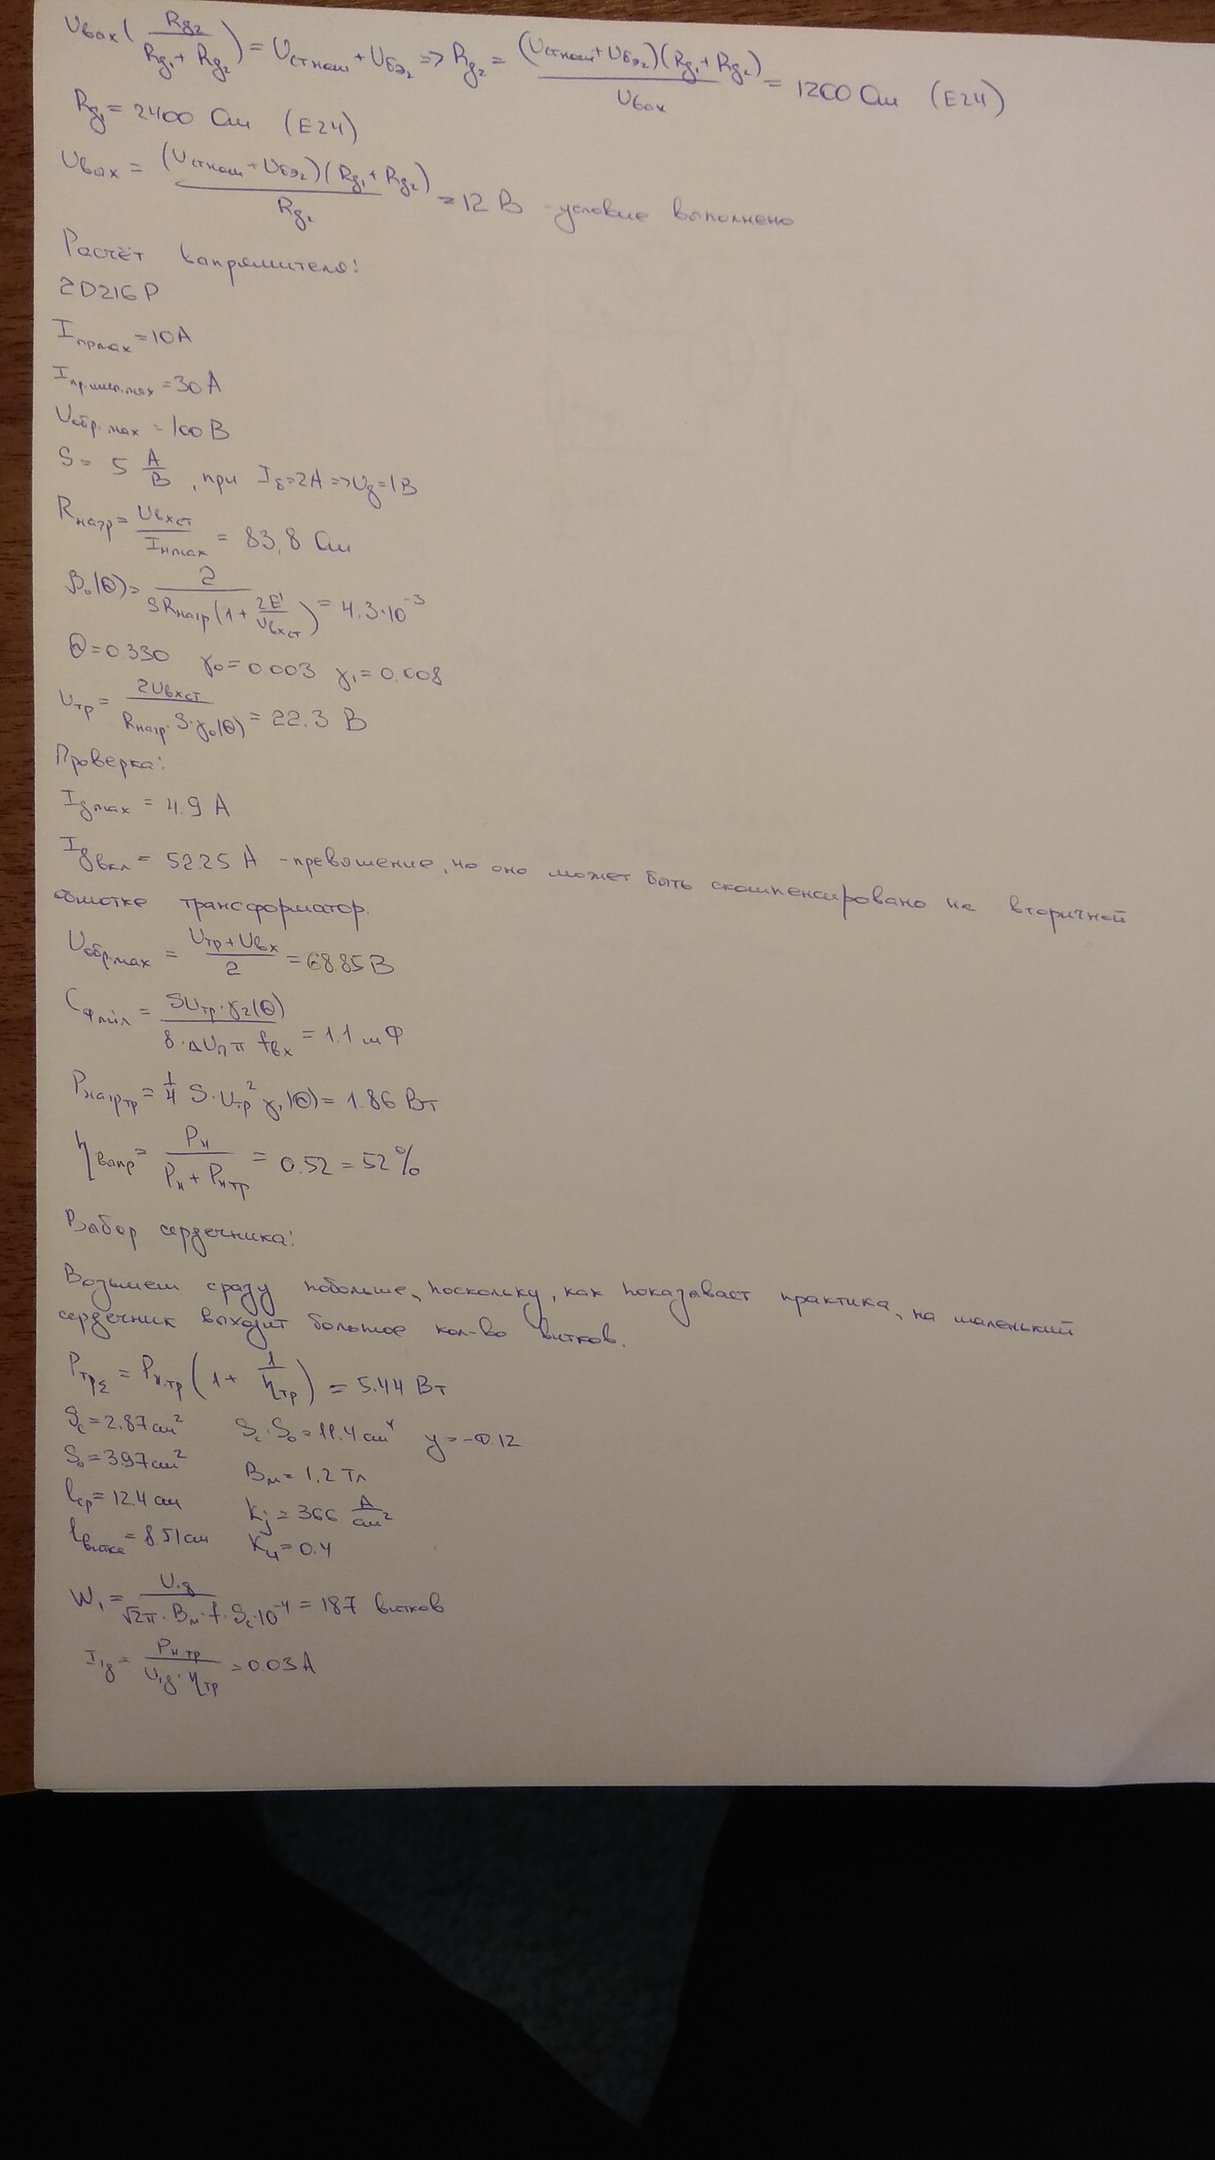 Uвых(Rg2/(Rg1+Rg2)) = Uст ном + Uбэ2 => Rg2 = (Uст ном + Uбэ2)(Rg1 + Rg2)/Uвых = 1200 Ом (E24)
Rg1 = 2400 Ом (E24)
Uвых = (Uст ном + Uбэ2)(Rg1 + Rg2)/Rg2 = 12 В - условие выполнено
Расчёт выпрямителя:
2D216P
Iпр max = 10A
Iпр. имп. max = 30 A
Uобр. max = 100 В
S = 5 А/В, при Ig = 2A => Ug = 1 В
Rнагр = Uвх ст/Iн max = 83,8 Ом
β0(Θ) = 2/(SRнагр(1 + 2E'/Uвх ст)) = 4.3·10^-3
Θ = 0.330 γ0 = 0.003 γ1 = 0.008
Uтр = 2Uвх ст/(Rнагр·S·γ0(Θ)) = 22.3 В
Проверка:
Ig max = 4.9 A
Ig вкл = 52.25 A - превышение, но оно может быть скомпенсировано на вторичной
обмотке трансформатор.
Uобр. max = (Uтр + Uвх)/2 = 68.85 В
Cф min = SUтр·γ2(Θ)/(8·ΔUп π fвх) = 1.1 мФ
Pнагр тр = 1/4 S·Uтр² γ1(Θ) = 1.86 Вт
ηвыпр = Pн/(Pн + Pн тр) = 0.52 = 52%
Выбор сердечника:
Возьмем сразу побольше, поскольку, как показывает практика, на маленький
сердечник выходит большое кол-во витков.
PтрΣ = Pн.тр(1 + 1/ηтр) = 5.44 Вт
Sc = 2.87 см² Sc·So = 11.4 см⁴ y = -0.12
So = 3.97 см² Bм = 1,2 Тл
lср = 12.4 см kj = 366 А/см²
lвитка = 8.51 см Kм = 0.4
W1 = U1g/(√2π·Bм·f·Sc·10^-4) = 187 витков
I1g = Pн.тр/(U1g·ηтр) = 0.03 A